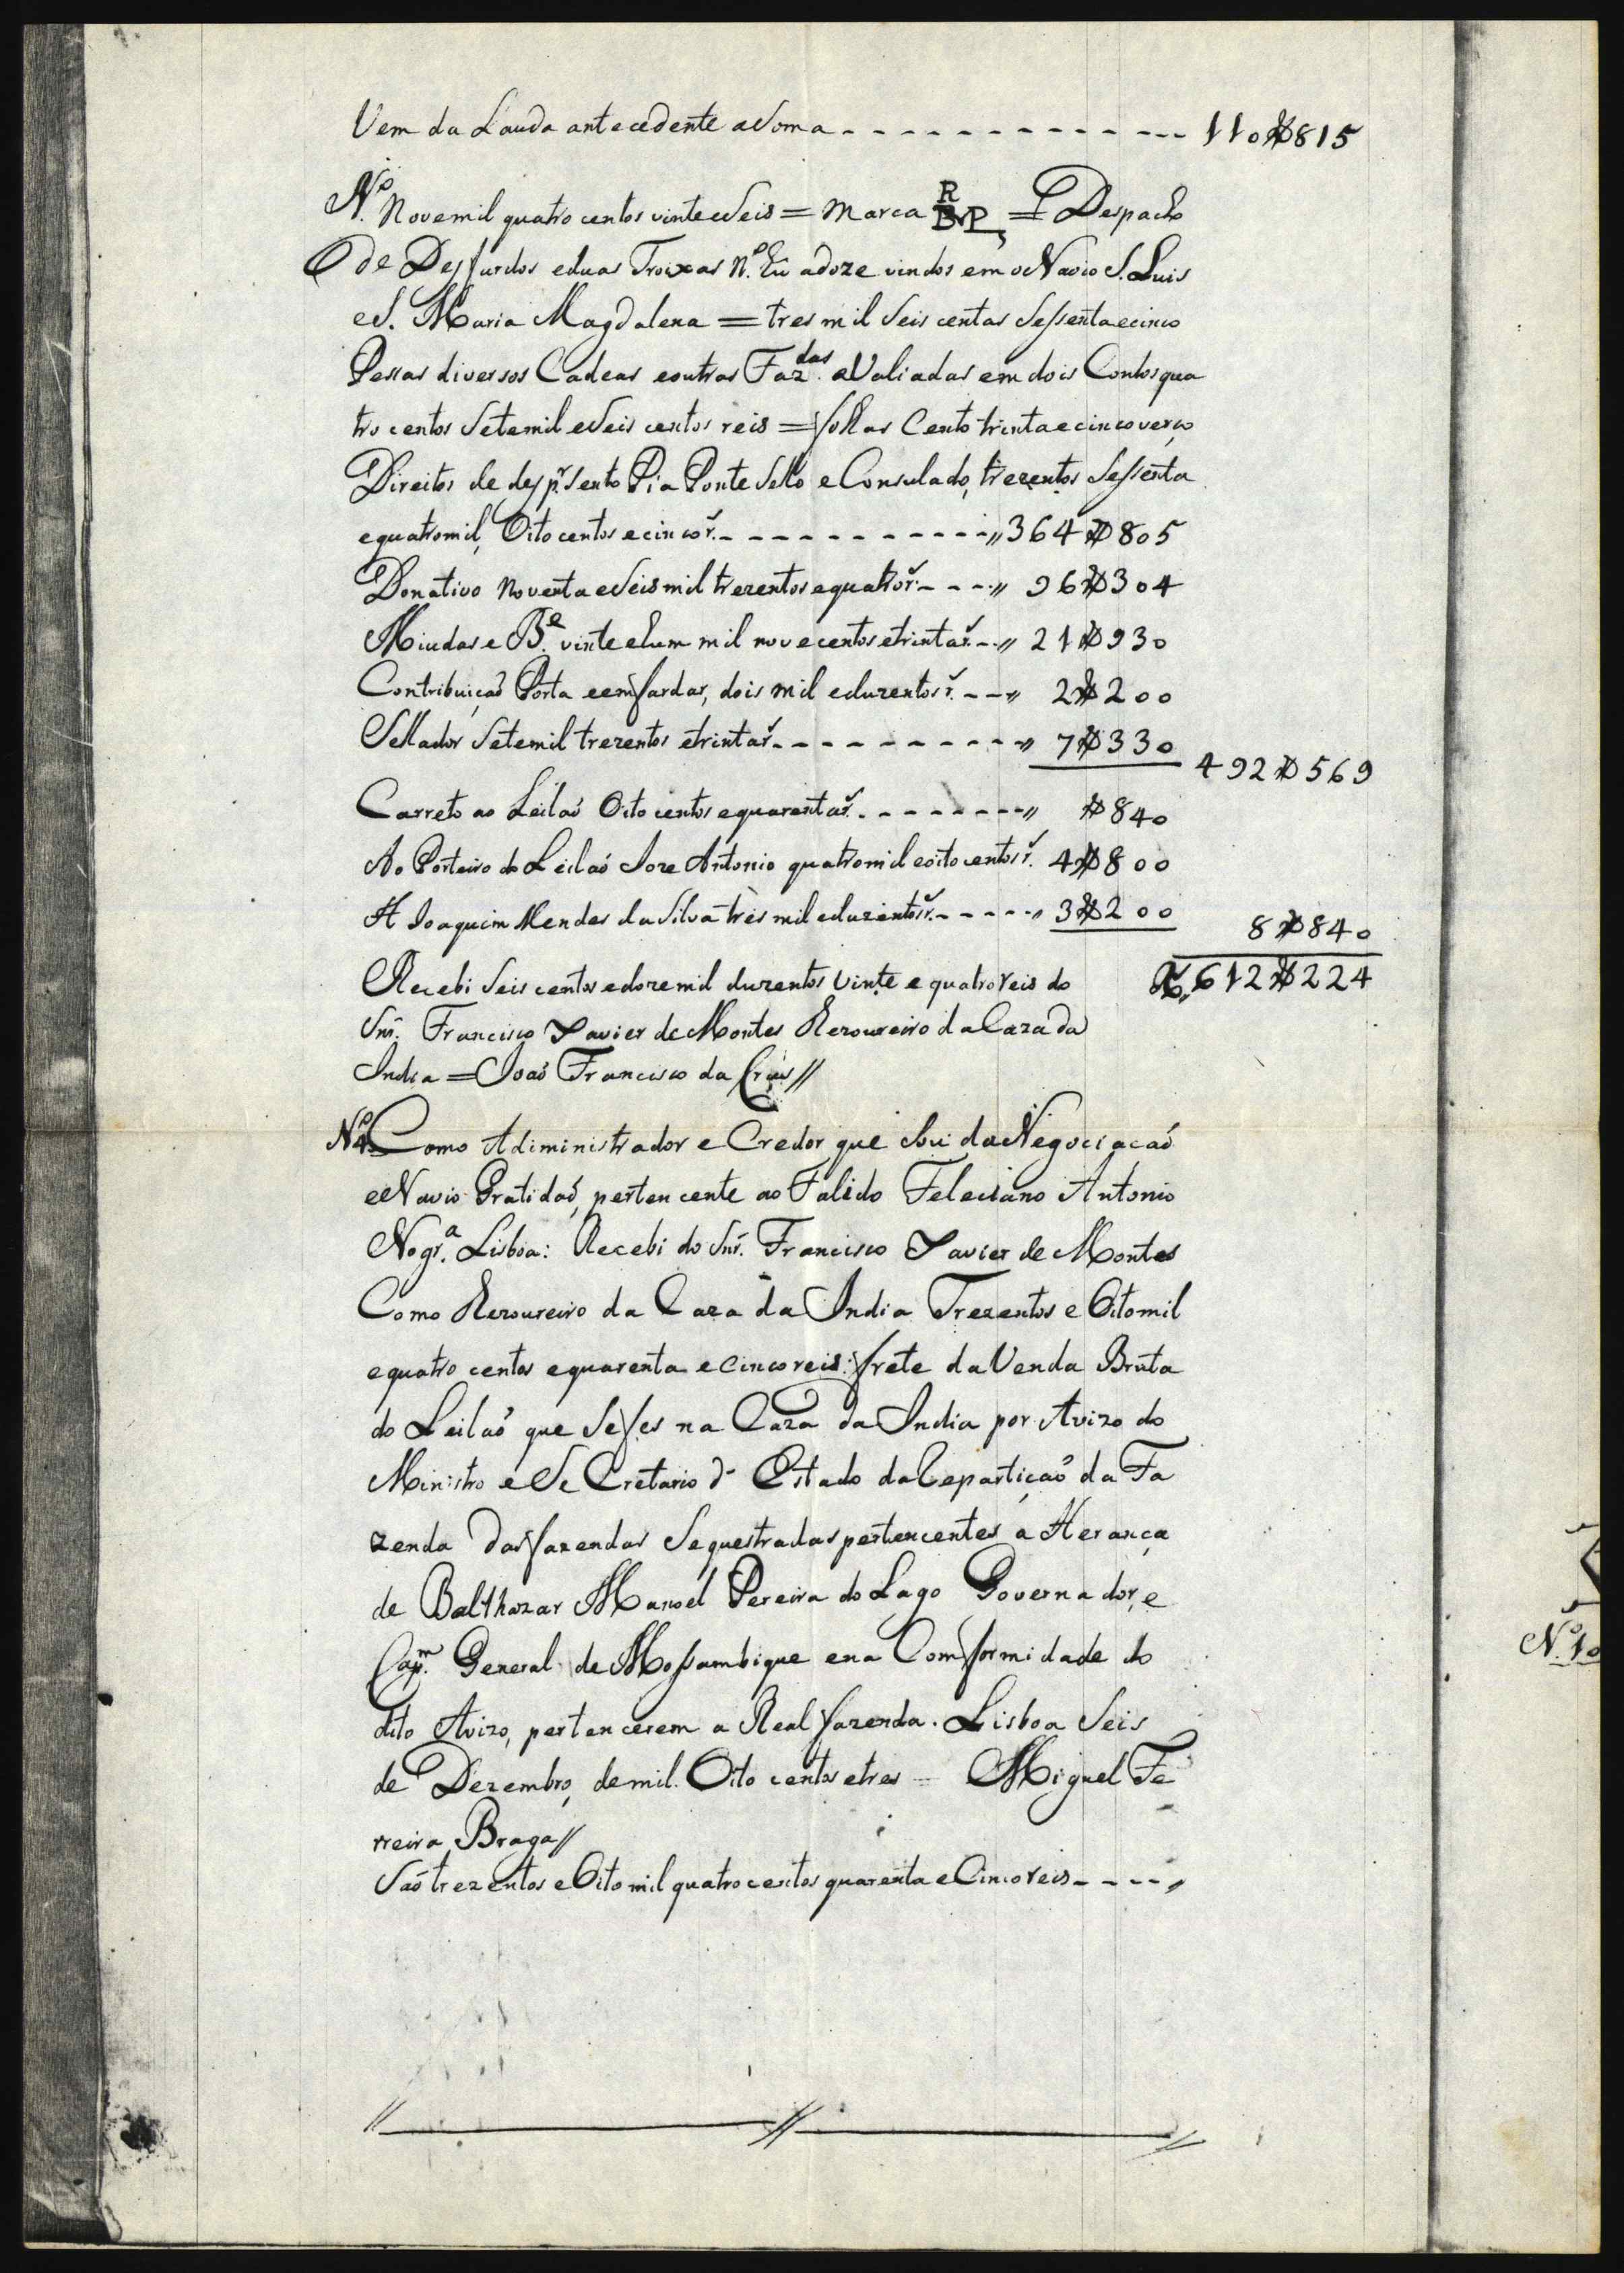 Vem da Lauda antecedente a Soma - - - - - - - - - - - - 110$815
N.º Nove mil quatro centos vinte e Seis = Marca R BVP = Despacho
de Des fardos e duas Troixas N.º Hu a doze vindos em o Navio S. Luis
e S. Maria Magdalena = tres mil Seis centas Sessenta e cinco
Pessas diversos Cadeas e outras Faz.das aValiadas em dois Contos qua
tro centos Sete mil e Seis centos reis = folhas Cento trinta e cinco verço
Direitos de desp.r Sento Pia Ponte Sello e Consulado, trezentos Sessenta
e quatro mil, Oito centos e cinco r.s - - - - - - - - - - - " 364$805
Donativo Noventa e Seis mil trezentos e quatro r.s - - - " 96$304
Miudas e B.e vinte e hum mil nove centos e trinta r.s - - " 21$930
Contribuiçaõ Porta e emfardar, dois mil e duzentos r.s - - " 2$200
Sellador Sete mil trezentos e trinta r.s - - - - - - - - - " 7$330
492$569
Carreto ao Leilaõ Oito centos e quarenta r.s - - - - - - - " $840
Ao Porteiro do Leilaõ Joze Antonio quatro mil e oito centos r.s 4$800
A Joaquim Mendes da Silva três mil e duzentos r.s - - - - - " 3$200
8$840
Recebi Seis centos e doze mil duzentos Vinte e quatro reis do R.s 612$224
Snr. Francisco Xavier de Montes Rezoureiro da Caza da
India = Joaõ Francisco da Crus //
N.º 4. Como Adiministrador e Credor que Sou da Negociacaõ
e Navio Gratidaõ, pertencente ao Falido Feleciano Antonio
Nogr.a Lisboa: Recebi do Snr. Francisco Xavier de Montes
Como Rezoureiro da Caza da India Trezentos e Oito mil
e quatro centos e quarenta e Cinco reis: frete da Venda Bruta
do Leilaõ que Se fes na Caza da India por Avizo do
Ministro e Se Cretario d' Estado da Repartiçaõ da Fa
zenda das fazendas Sequestradas pertencentes a Herança
de Balthazar Manoel Pereira do Lago Governador, e
Cap.m General de Mossambique e na Comformidade do
dito Avizo, pertencerem a Real fazenda. Lisboa Seis
de Dezembro, de mil Oito centos e tres = Miguel Fe
rreira Braga //
Saõ trezentos e Oito mil quatro centos quarenta e Cinco reis - - - - "
N.º 10